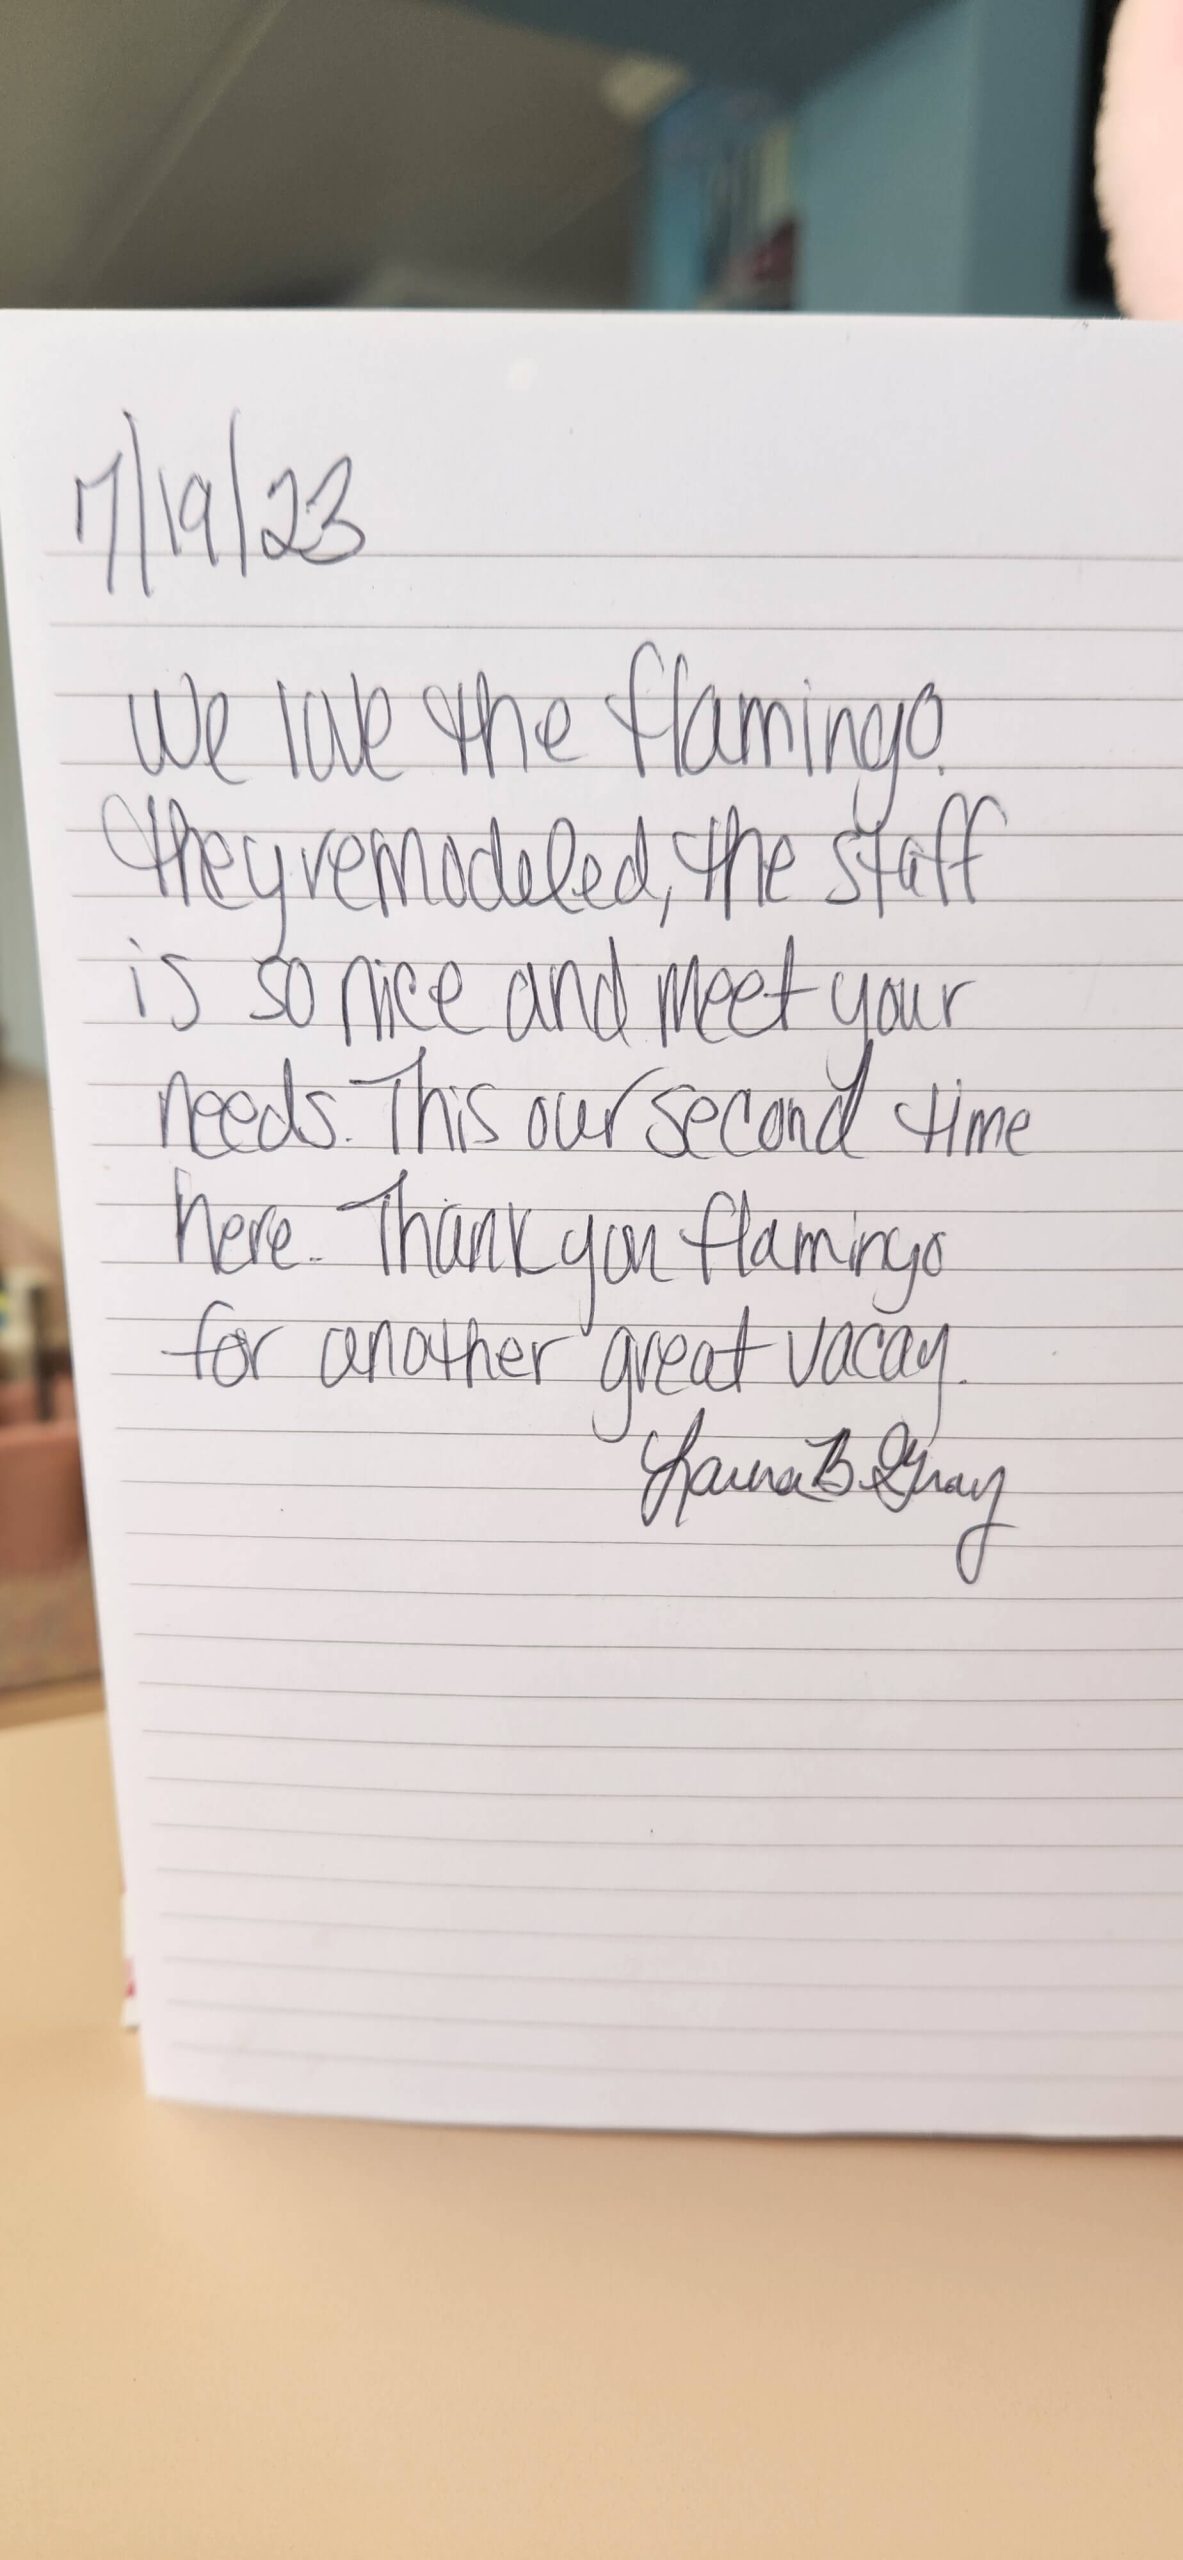 7/19/23
We love the flamingo.
they remodeled, the staff
is so nice and meet your
needs. This our second time
here. Thank you flamingo
for another great vacay.
Laura B. Gray